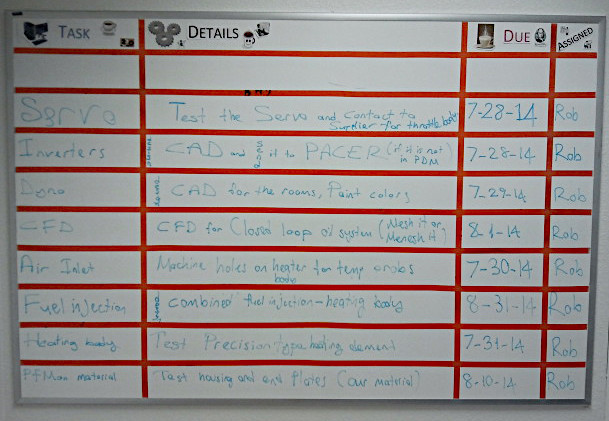 TASK DETAILS DUE ASSIGNED
Servo Test the Servo and contact to 7-28-14 Rob
Supplier for throttle body
Inverters CAD and send it to PACER (if it is not 7-28-14 Rob
in PDM)
Dyno CAD for the rooms, Paint colors 7-29-14 Rob
CFD CFD for Closed loop oil system (Mesh it or 8-1-14 Rob
Air Inlet Machine holes on heater for temp 7-30-14 Rob
body
Fuel injection combined fuel injection-heating body 8-31-14 Rob
Heating body Test Precision type heating element 7-31-14 Rob
material Test housing and end Plates (our material) 8-10-14 Rob